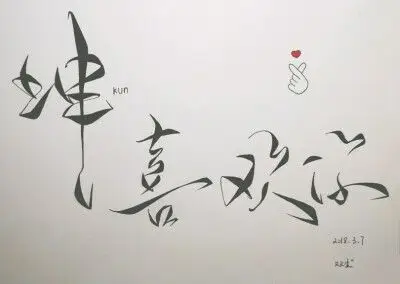 坤
kun
喜欢你
2018.3.7